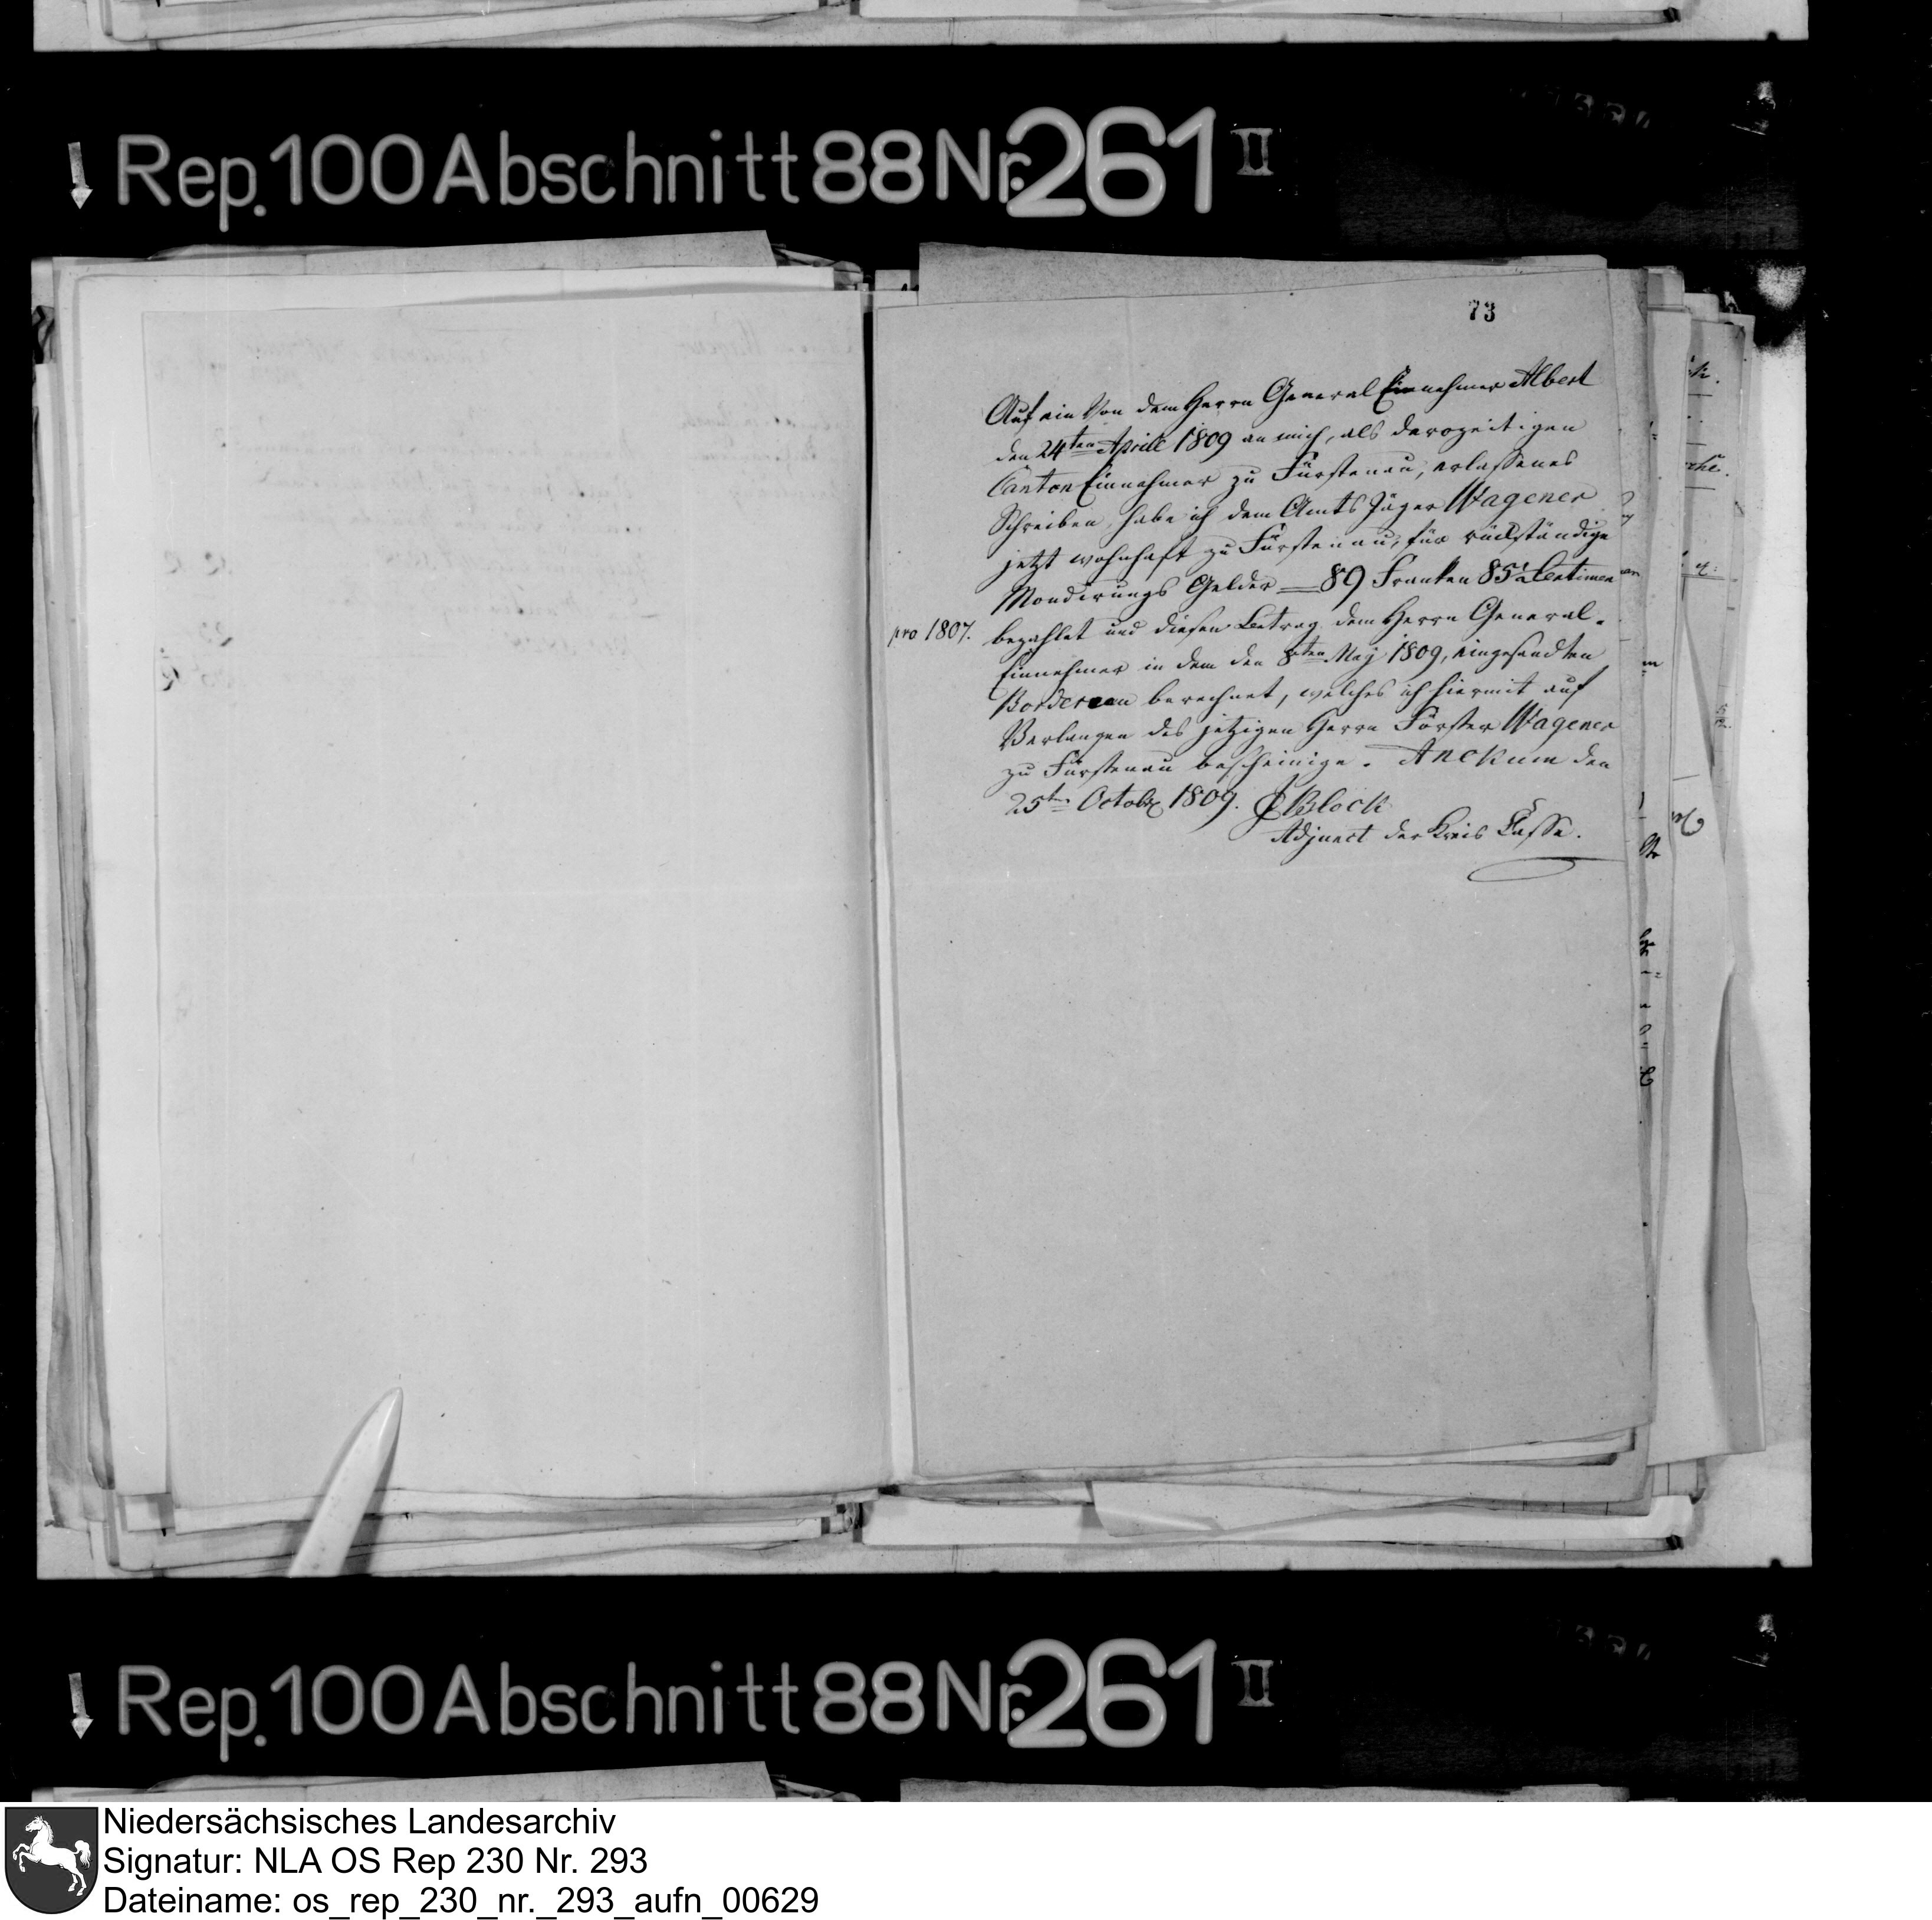 Rep. 100 Abschnitt 88 Nr. 261 II
73
Auf ein von dem Herrn General Einnehmer Albert
den 24ten Aprill 1809 an mich, als derozeitigen
Canton Einnehmer zu Fürstenau, erlassenes
Schreiben, habe ich dem Amts Jäger Wagener
jetzt wohnhaft zu Fürstenau, für rückständige
Mondirungs Gelder = 89 Franken 85 Centimen
pro 1807. bezahlet und diesen Betrag dem Herrn General-
Einnehmer in dem den 8ten May 1809, eingesandten
Bordereau berechnet, welches ich hiermit auf
Verlangen des jetzigen Herrn Förster Wagener
zu Fürstenau bescheinige. Anckum den
25ten Octobr 1809. Block
Adjunct der Kreis Casse.
Rep. 100 Abschnitt 88 Nr. 261 II
Niedersächsisches Landesarchiv
Signatur: NLA OS Rep 230 Nr. 293
Dateiname: os_rep_230_nr._293_aufn_00629